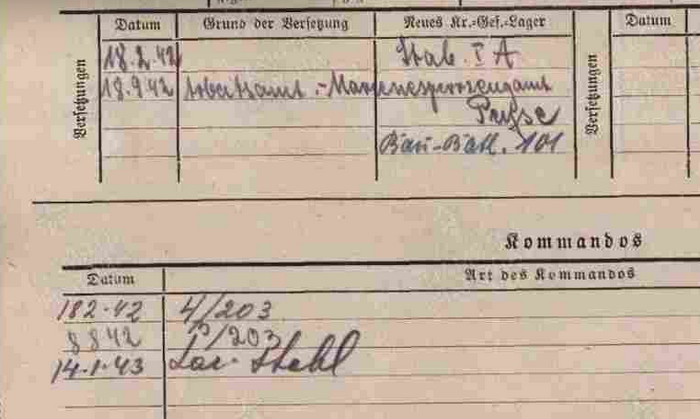 Datum Grund der Versetzung Neues Kr.-Gef.-Lager Datum
Versetzungen
18.2.42 Stal. I A
18.9.42 Arbeitsamt.-Marinesperrzeugamt
Bau-Batl. 101
Versetzungen
Kommandos
Datum Art des Kommandos
18 2.42 4/203
8 8 42 /203
14.1.43 Laz.